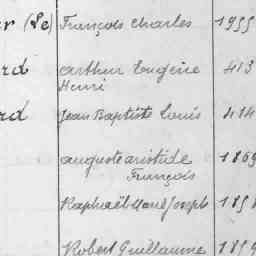 (Le) François Charles 1955
rd Arthur Eugène 413
Henri
rd Jean Baptiste Louis 414
auguste aristide 1869
François
Raphaël Joseph
Robert Guillaume